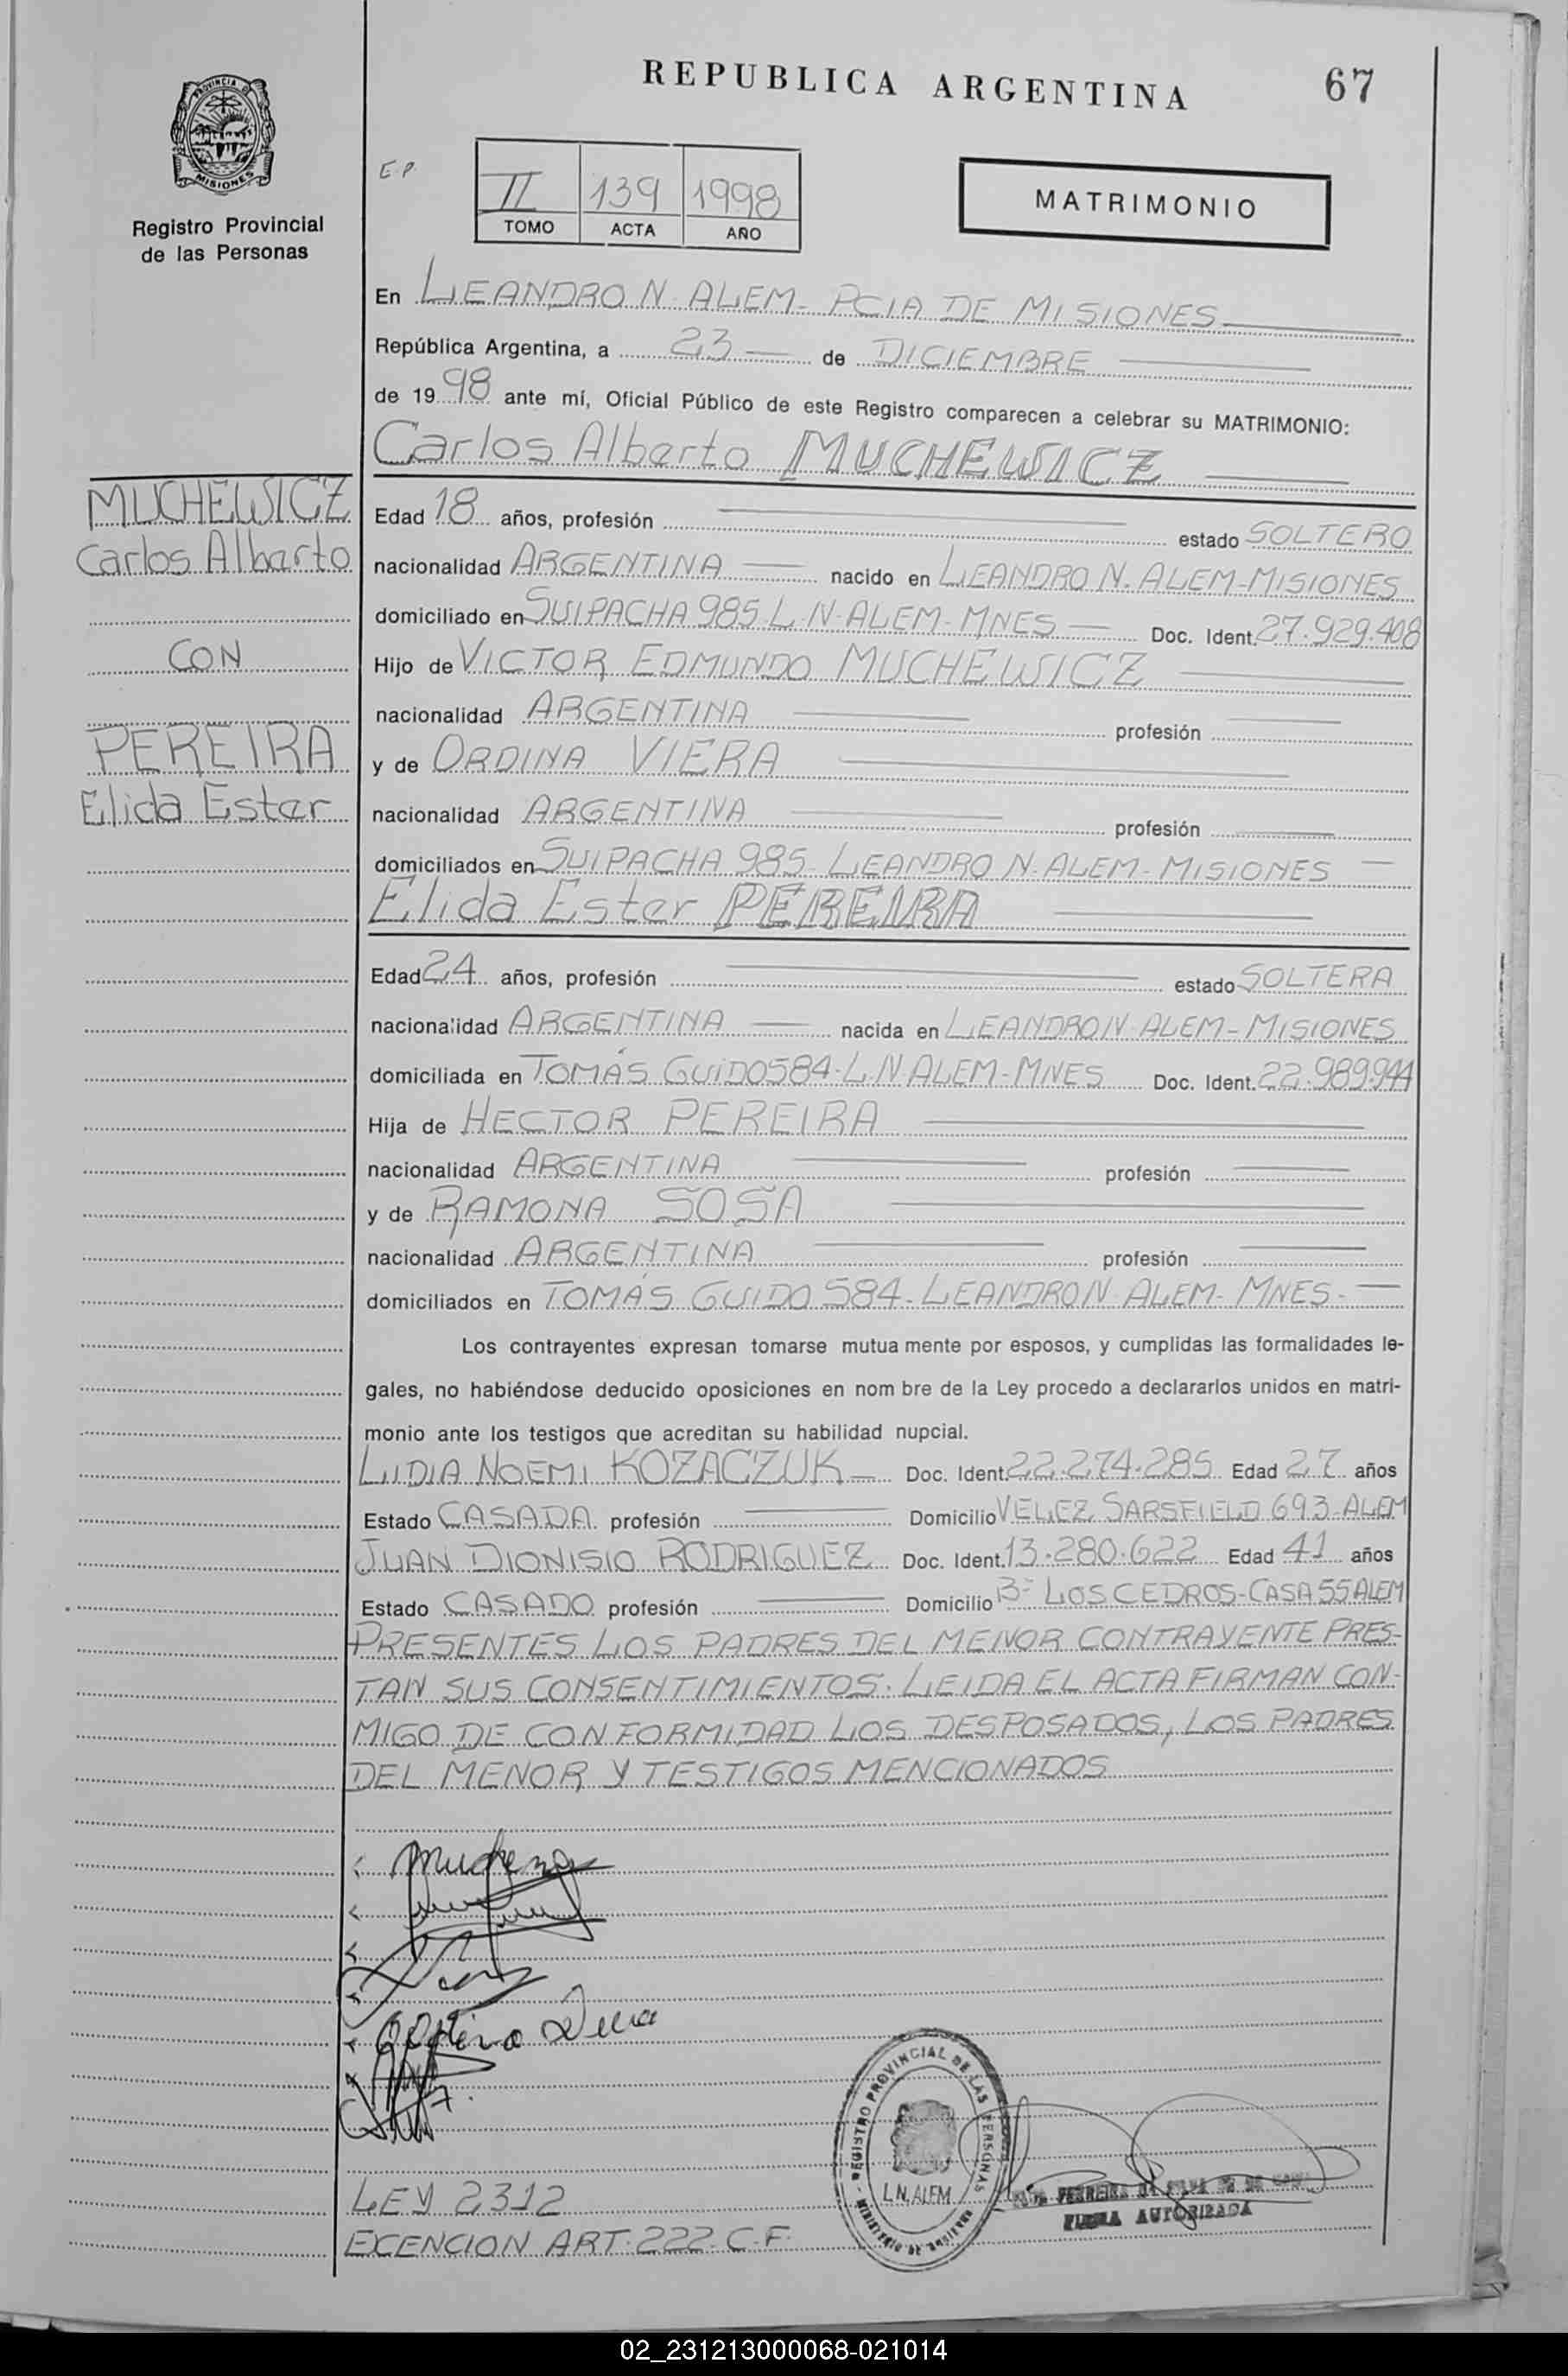 REPUBLICA ARGENTINA
67
PROVINCIA DE
MISIONES
Registro Provincial
de las Personas
E.P.
II 139 1998
TOMO ACTA AÑO
MATRIMONIO
En LEANDRO N. ALEM- PCIA DE MISIONES
República Argentina, a 23 de DICIEMBRE
de 1998 ante mí, Oficial Público de este Registro comparecen a celebrar su MATRIMONIO:
Carlos Alberto MUCHEWSICZ
MUCHEWSICZ
Carlos Alberto
CON
PEREIRA
Elida Ester
Edad 18 años, profesión estado SOLTERO
nacionalidad ARGENTINA nacido en LEANDRO N. ALEM-MISIONES
domiciliado en SUIPACHA 985-L-N-ALEM-MNES Doc. Ident. 27.929.408
Hijo de VICTOR EDMUNDO MUCHEWSICZ
nacionalidad ARGENTINA profesión
y de ORDINA VIERA
nacionalidad ARGENTINA profesión
domiciliados en SUIPACHA 985- LEANDRO N. ALEM- MISIONES
Elida Ester PEREIRA
Edad 24 años, profesión estado SOLTERA
nacionalidad ARGENTINA nacida en LEANDRO N. ALEM-MISIONES
domiciliada en TOMÁS GUIDO 584-L.N ALEM-MNES Doc. Ident. 22.989.944
Hija de HECTOR PEREIRA
nacionalidad ARGENTINA profesión
y de RAMONA SOSA
nacionalidad ARGENTINA profesión
domiciliados en TOMÁS GUIDO 584- LEANDRO N. ALEM- MNES-
Los contrayentes expresan tomarse mutua mente por esposos, y cumplidas las formalidades le-
gales, no habiéndose deducido oposiciones en nom bre de la Ley procedo a declararlos unidos en matri-
monio ante los testigos que acreditan su habilidad nupcial.
LIDIA NOEMI KOZACZUK Doc. Ident. 22.274.285 Edad 27 años
Estado CASADA profesión Domicilio VELEZ SARSFIELD 693-ALEM
JUAN DIONISIO RODRIGUEZ Doc. Ident. 13.280.622 Edad 41 años
Estado CASADO profesión Domicilio B- LOS CEDROS-CASA 55 ALEM
PRESENTES LOS PADRES DEL MENOR CONTRAYENTE PRES-
TAN SUS CONSENTIMIENTOS. LEIDA EL ACTA FIRMAN CON-
MIGO DE CONFORMIDAD LOS DESPOSADOS, LOS PADRES
DEL MENOR Y TESTIGOS MENCIONADOS
REGISTRO PROVINCIAL DE LAS PERSONAS
L.N. ALEM
FERREIRA
FIRMA AUTORIZADA
LEY 2312
EXCENCION ART. 222. C.F.
02_231213000068-021014